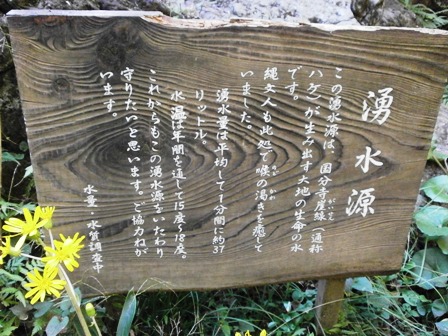 湧水源
この湧水源は、国分寺崖線（通称
ハケ）が生み出す大地の生命の水
です。
縄文人も此処で喉の渇きを癒して
いました。
湧水量は平均して1分間に約37
リットル。
水温は年間を通して15度〜18度。
これからもこの湧水源をいたわり
守りたいと思います。ご協力ねが
います。
水量・水質調査中